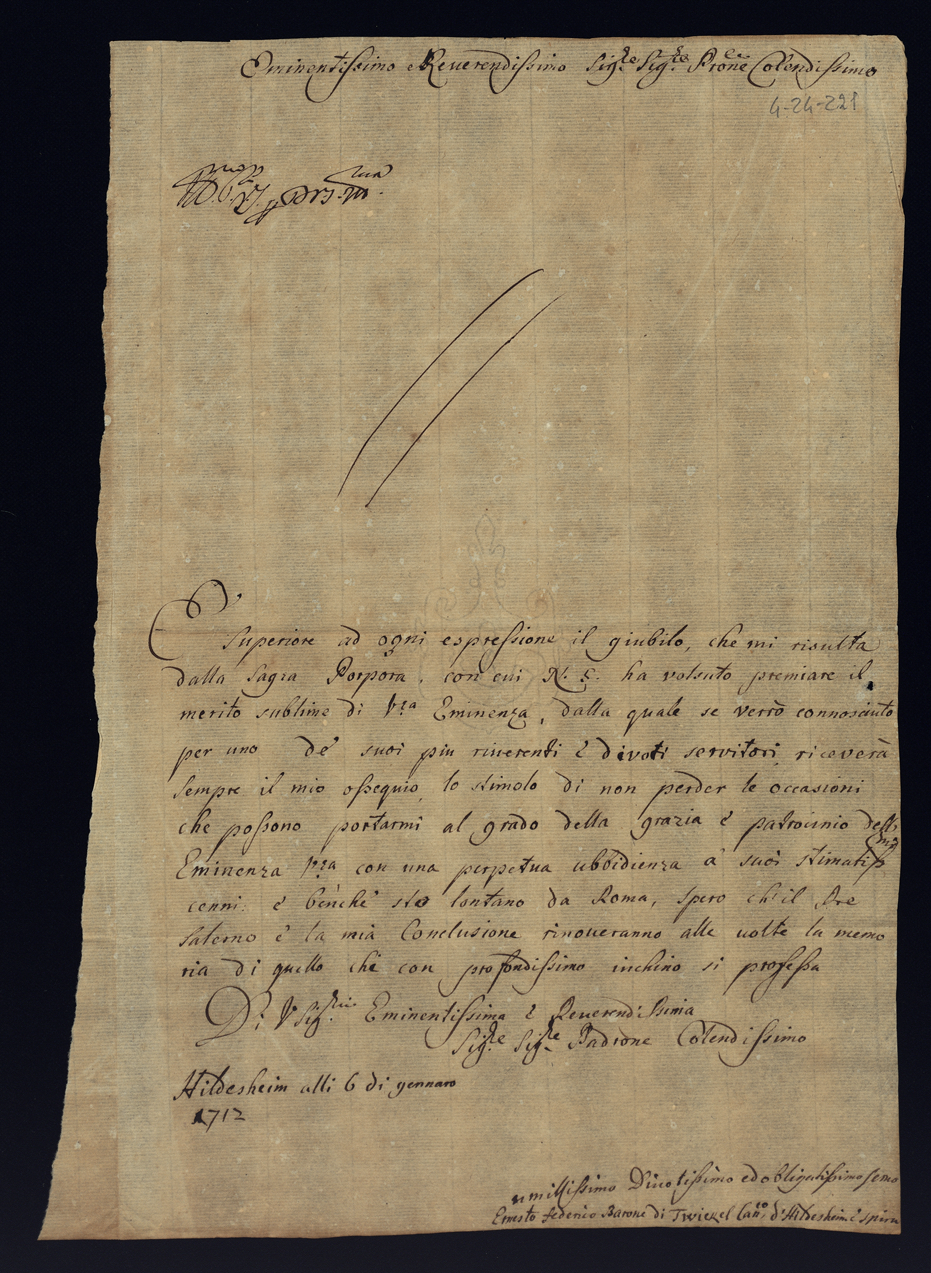 Eminentissimo e Reverendissimo Sig.re Sig.re Prone Colendissimo
4-24-221
E' Superiore ad ogni espressione il giubilo, che mi risulta
dalla Sagra Porpora, con cui N. S. ha volsuto premiare il
merito sublime di V.ra Eminenza, dalla quale se verrò connosciuto
per uno de' suoi piu riverenti è divoti servitori, riceverà
sempre il mio ossequio lo stimolo di non perder le occasioni
che possono portarmi al grado della grazia è patrocinio dell'
Eminenza V.ra con una perpetua ubbidienza a' suoi stimatiss.mi
cenni: è bènche stò lontano da Roma, spero ch'il Pre
Salerno è la mià Conclusione rinoveranno alle volte la memo
ria di quello che con profondissimo inchino si professa
Di V. Sig.ria Eminentissima è Reverendissima
Sig.re Sig.re Padrone Colendissimo
Hildesheim alli 6 di gennaro
1712
umilissimo Divotissimo ed obligatissimo servo
Ernesto Federico Barone di Twickel Can.co d'Hildesheim è Spira